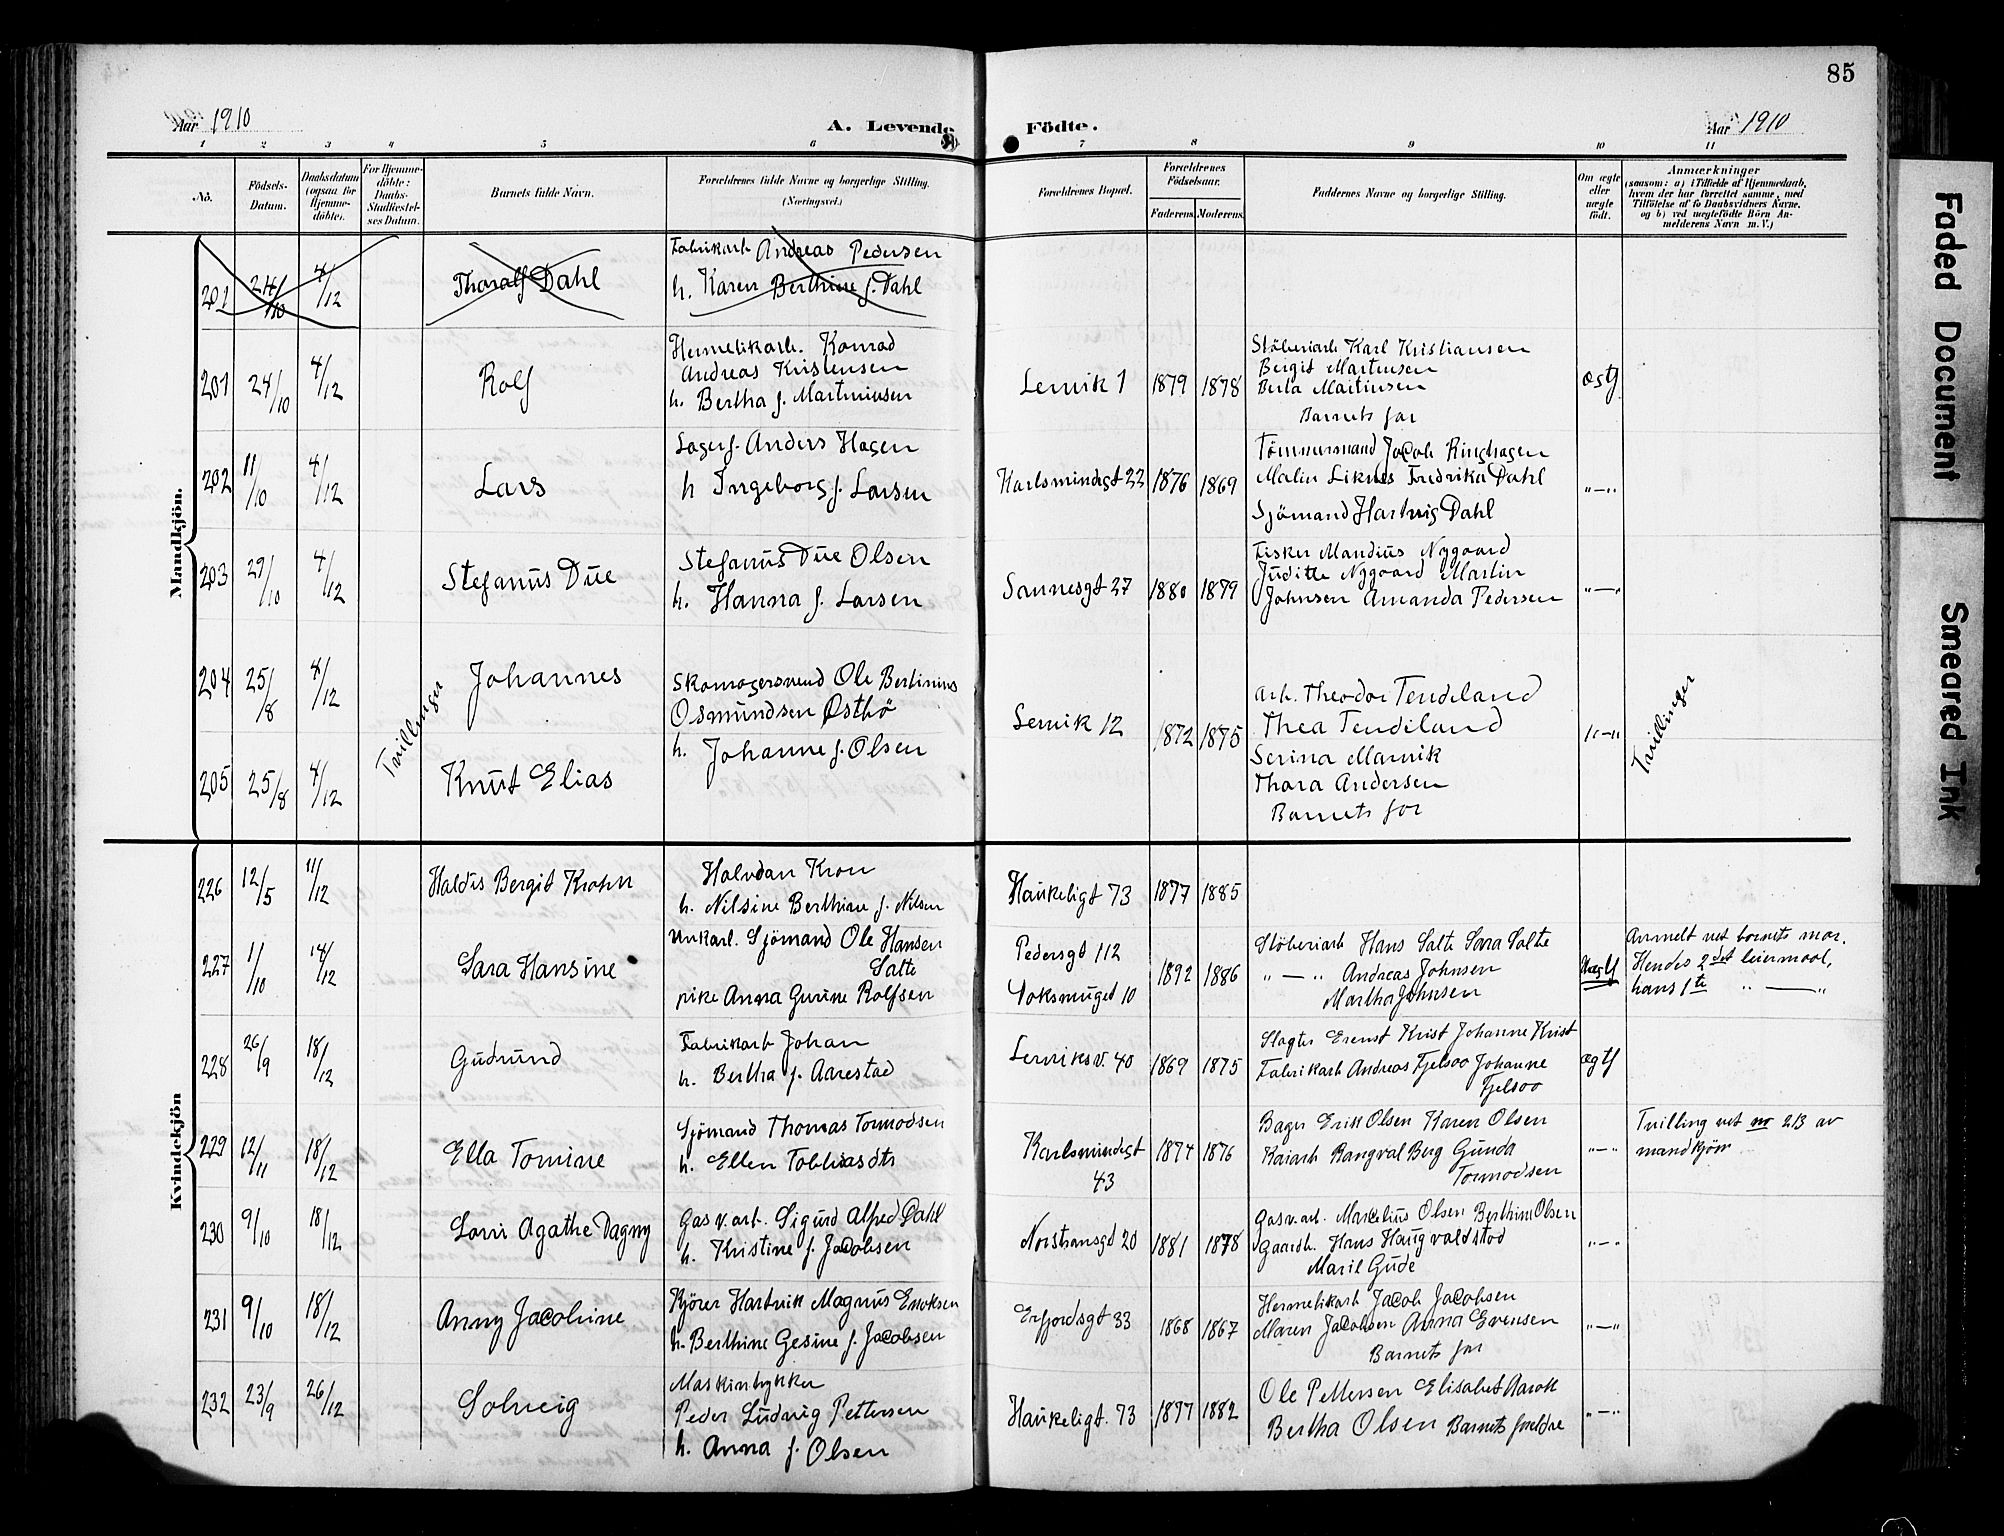 85
Aar 1910
A. Levende Födte.
Aar 1910
1 2 3 4 5 6 7 8 9 10 11
No.
Födsels-Datum.
Daabsdatum (ogsaa for Hjemme-döbte).
For Hjemme-döbte: Daabs-Stadfæstelses Datum.
Barnets fulde Navn.
Forældrenes fulde Navne og borgerlige Stilling. (Næringsvei.)
Forældrenes Bopæl.
Forældrenes Födselsaar.
Faderens. Moderens.
Faddernes Navne og borgerlige Stilling.
Om ægte eller uægte födt.
Anmærkninger
(saasom: a) i Tilfælde af Hjemmedaab, hvem der har forrettet samme, med Tilföielse af to Daabsvidners Navne, og b) ved uægtefödte Börn Anmelderens Navn m. V.)
Mandkjön.
201 24/10 4/12 Thoralf Dahl
Fabrikarb Andreas Pedersen
h. Karen Berthine f. Dahl
201 24/10 4/12 Rolf
Hermetikarb. Konrad
Andreas Kristensen
h. Bertha f. Martinsen
Lervik 1 1879 1878
Stöberiarb Karl Kristiansen
Bergit Martinsen
Berta Martinsen
Barnets far
ægtf
202 11/10 4/12 Lars
Lagerf. Anders Hagen
h Ingeborg f. Larsen
Karlsmindegt 22 1876 1869
Tömmermand Jacob Ringhagen
Malin Liknes Fredrika Dahl
Sjömand Hartvig Dahl
"—"
203 29/10 4/12 Stefanus Due
Stefanus Due Olsen
h. Hanna f. Larsen
Sannesgt 27 1880 1879
Fisker Mandius Nygaard
Juditte Nygaard Martin
Johnsen Amanda Pedersen
"—"
204 25/8 4/12 Johannes
Tvillinger
205 25/8 4/12 Knut Elias
Skomagersvend Ole Bertinius
Osmundsen Østhö
h. Johanne f. Olsen
Lervik 12 1872 1875
Arb. Theodor Tendeland
Thea Tendeland
Serina Marvik
Thora Andersen
Barnets far
"—"
Tvillinger
Kvindekjön
226 12/5 11/12 Haldis Bergit Krohn
Halvdan Kron
h. Nilsine Berthine f. Nilsen
Haukeligt 73 1877 1885
227 1/10 14/12 Sara Hansine
Unkarl. Sjömand Ole Hansen
Salte
pike Anna Gurine Rolfsen
Pedersgt 112
Voksmuget 10
1892 1886
Stöberiarb Hans Salte Sara Salte
"—" Andreas Johnsen
Martha Johnsen
Uægtf
Anmelt vet barnets mor.
Hendes 2det leiermaal,
hans 1te "—"
228 26/9 18/12 Gudrund
Fabrikarb Johan
h. Bertha f. Aarestad
Lerviksv. 40 1869 1875
Slagter Ernst Krist Johanne Krist
Fabrikarb Andreas Fjelsoo Johanne
Fjelsoo
ægtf
229 12/11 18/12 Ella Tomine
Sjömand Thomas Tormodsen
h. Ellen Tobiasdtr
Karlsmindegt
43
1874 1876
Bager Erik Olsen Karen Olsen
Kaiarb Rangval Berg Gunda
Tormodsen
"—"
Tvilling vet no 213 av
mandkjön
230 9/10 18/12 Lovis Agathe Dagny
Gasv.arb. Sigurd Alfred Dahl
h. Kristine f. Jacobsen
Norstransgt 20 1881 1878
Gasv.arb. Marcelius Olsen Berthine Olsen
Gaardb. Hans Haugvaldstad
Maril Gude
"—"
231 9/10 18/12 Anny Jacobine
Kjörer Hartvik Magnus Enoksen
h. Berthine Gesine f. Jacobsen
Erfjordsgt 33 1868 1867
Hermetikarb Jacob Jacobsen
Maren Jacobsen Anna Evensen
Barnets far
"—"
232 23/9 26/12 Solveig
Maskinbykker
Peder Ludvig Pettersen
h. Anna f. Olsen
Haukeligt. 73 1877 1882
Ole Pettersen Elisabet Aarok
Bertha Olsen Barnets foreldre
"—"
Faded Document
Smeared Ink